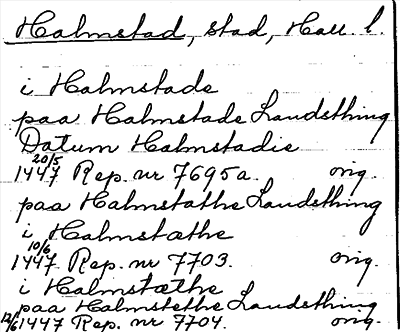 Halmstad, stad, Hall l.
i Halmstade
paa Halmstade Landsthing
Datum Halmstadie
20/5 1447 Rep. nr 7695a. orig.
paa Halmstathe Landsthing
i Halmstæthe
10/6 1447 Rep. nr 7703. orig.
i Halmstæthe
paa Halmstethe Landsthing
12/6 1447 Rep. nr 7704. orig.